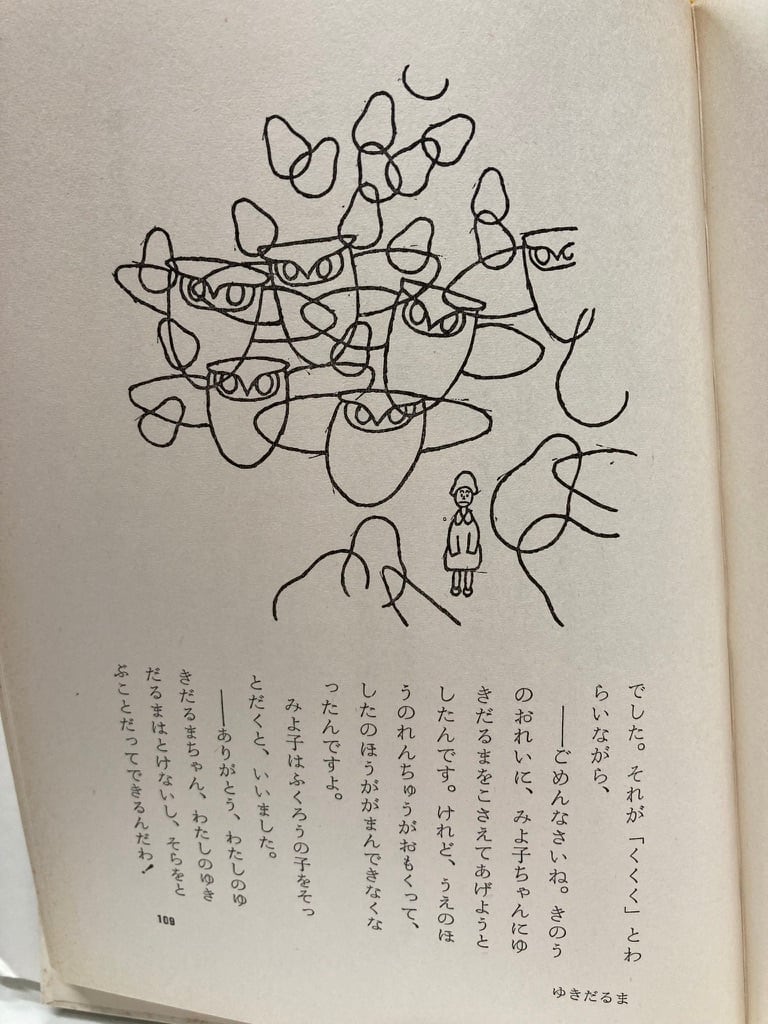 でした。それが「くくく」とわ
らいながら、
――ごめんなさいね。きのう
のおれいに、みよ子ちゃんにゆ
きだるまをこさえてあげようと
したんです。けれど、うえのほ
うのれんちゅうがおもくって、
したのほうががまんできなくな
ったんですよ。
みよ子はふくろうの子をそっ
とだくと、いいました。
――ありがとう、わたしのゆ
きだるまちゃん、わたしのゆき
だるまはとけないし、そらをと
ぶことだってできるんだわ！
109
ゆきだるま